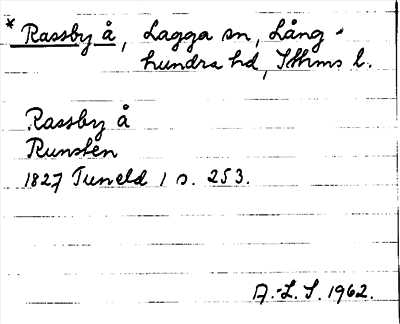 * Rassby å, Lagga sn, Lång-
hundra hd, Sthms l.
Rassby å
Runsten
1827 Tuneld 1 s. 253.
A.-L. S. 1962.